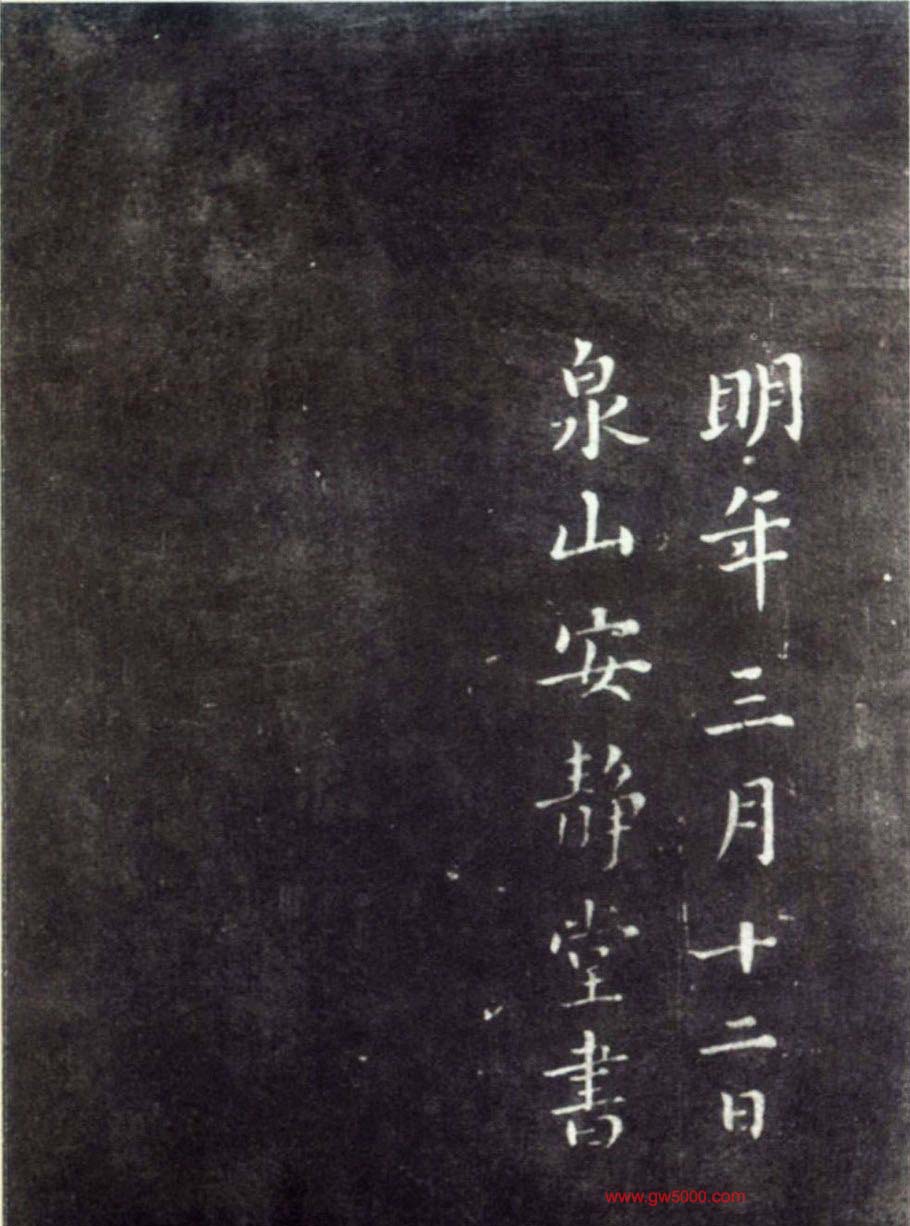 明年三月十二日
泉山安静堂書
www.gw5000.com